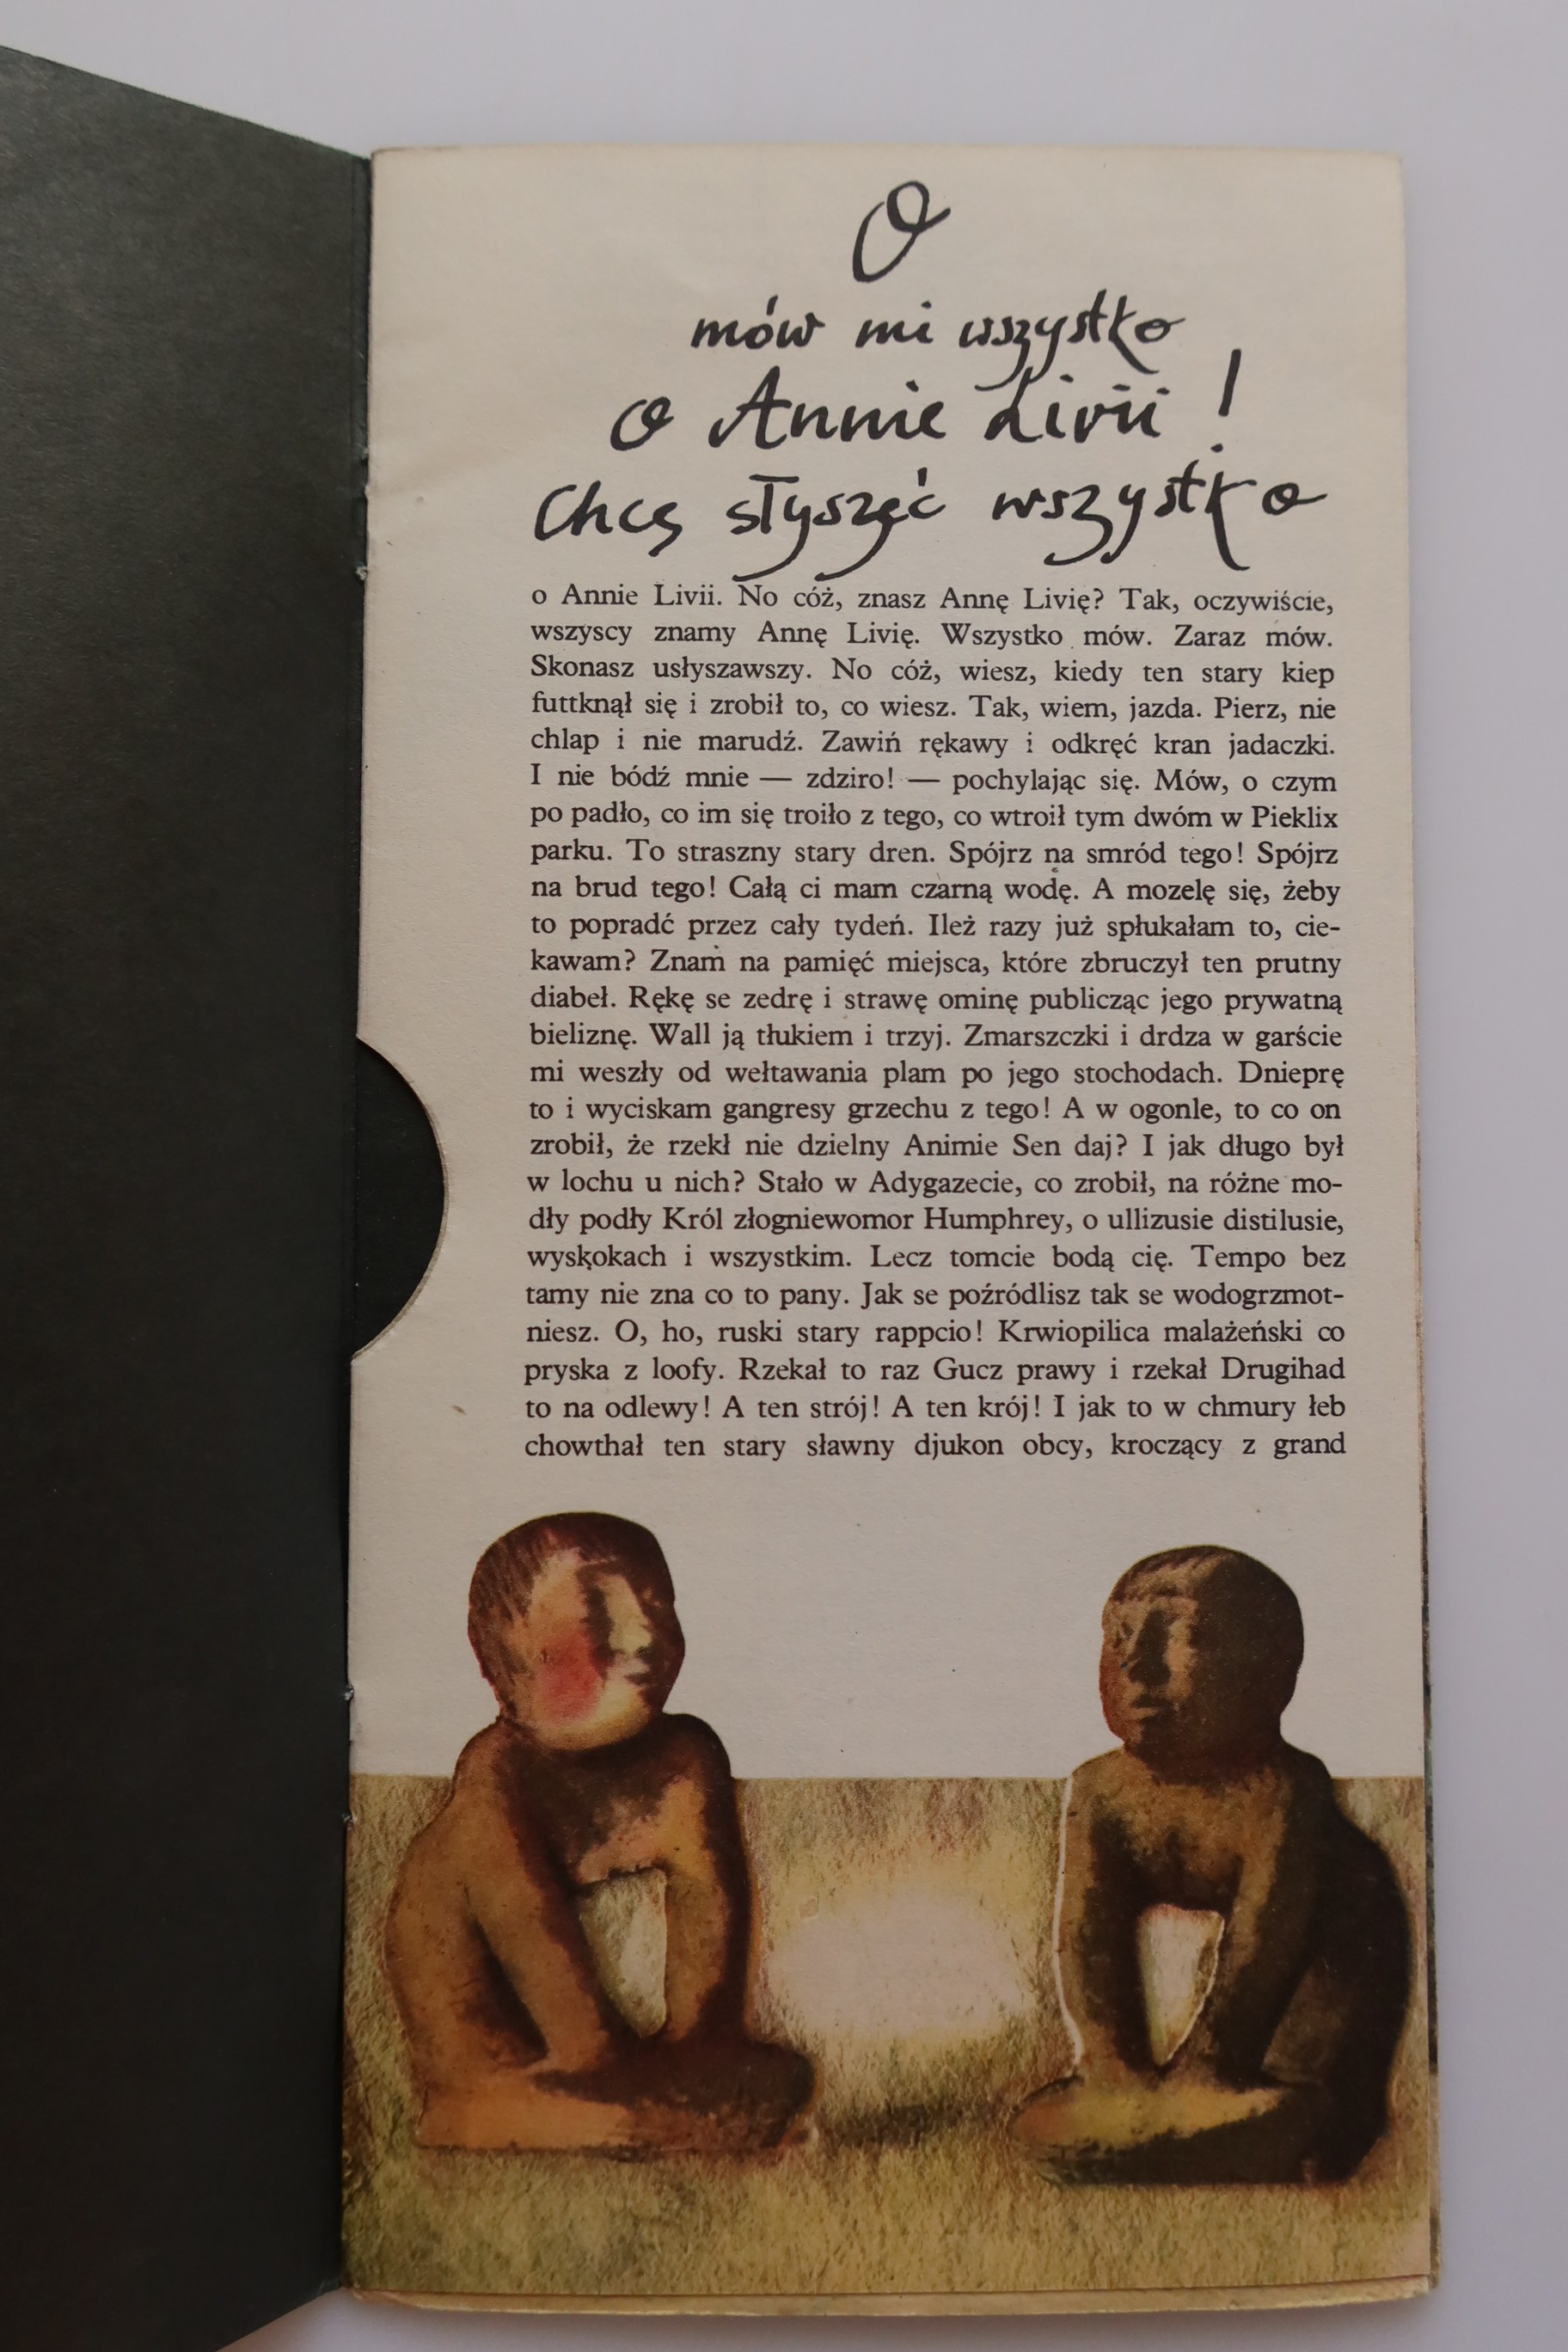 O
mów mi wszystko
o Annie Livii!
Chcę słyszeć wszystko
o Annie Livii. No cóż, znasz Annę Livię? Tak, oczywiście,
wszyscy znamy Annę Livię. Wszystko mów. Zaraz mów.
Skonasz usłyszawszy. No cóż, wiesz, kiedy ten stary kiep
futtknął się i zrobił to, co wiesz. Tak, wiem, jazda. Pierz, nie
chlap i nie marudź. Zawiń rękawy i odkręć kran jadaczki.
I nie bódź mnie — zdziro! — pochylając się. Mów, o czym
po padło, co im się troiło z tego, co wtroił tym dwóm w Pieklix
parku. To straszny stary dren. Spójrz na smród tego! Spójrz
na brud tego! Całą ci mam czarną wodę. A mozelę się, żeby
to popradć przez cały tydeń. Ileż razy już spłukałam to, cie-
kawam? Znam na pamięć miejsca, które zbruczył ten prutny
diabeł. Rękę se zedrę i strawę ominę publicząc jego prywatną
bieliznę. Wall ją tłukiem i trzyj. Zmarszczki i drdza w garście
mi weszły od wełtawania plam po jego stochodach. Dnieprę
to i wyciskam gangresy grzechu z tego! A w ogonle, to co on
zrobił, że rzekł nie dzielny Animie Sen daj? I jak długo był
w lochu u nich? Stało w Adygazecie, co zrobił, na różne mo-
dły podły Król złogniewomor Humphrey, o ullizusie distilusie,
wyskokach i wszystkim. Lecz tomcie bodą cię. Tempo bez
tamy nie zna co to pany. Jak se poźródlisz tak se wodogrzmot-
niesz. O, ho, ruski stary rappcio! Krwiopilica malażeński co
pryska z loofy. Rzekał to raz Gucz prawy i rzekał Drugihad
to na odlewy! A ten strój! A ten krój! I jak to w chmury łeb
chowthał ten stary sławny djukon obcy, kroczący z grand